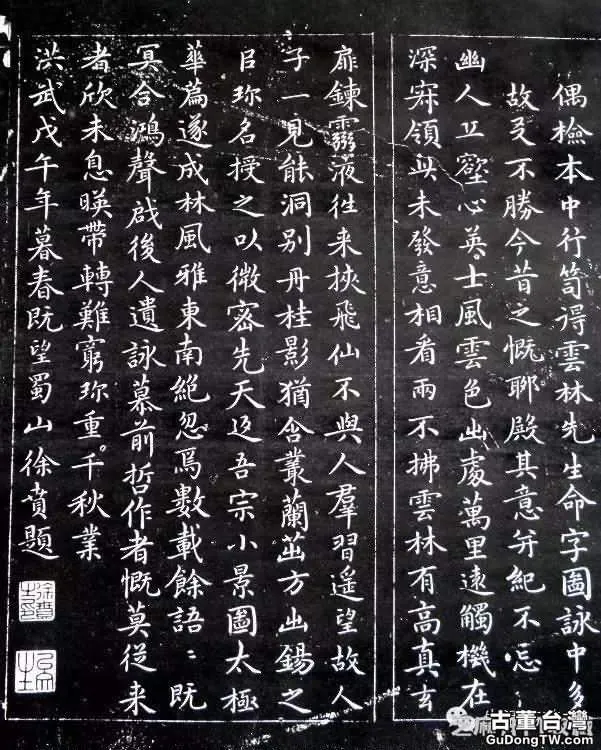 偶檢本中行笥得雲林先生命字圖詠中多
故友不勝今昔之慨聊殿其意并紀不忘
幽人丘壑心英士風雲色出處萬里遠觸機在
深寂領此未發意相看兩不拂雲林有高真玄
扉鍊靈液往来挾飛仙不與人羣習遥望故人
子一見能洞别丹桂影猶含叢蘭茁方出錫之
㠯珎名授之以微密先天迓吾宗小景圖太極
華篇遂成林風雅東南絶忽焉數載餘語〻既
冥合鴻聲啟後人遺詠慕前哲作者慨莫從来
者欣未息暎帶轉難窮珎重千秋業
洪武戊午年暮春既望蜀山徐賁題
古董台灣
GuDongTW.com